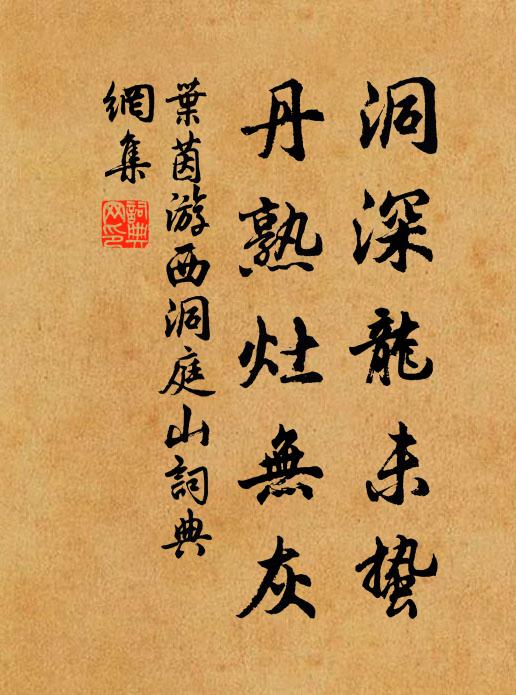 洞深龍未蟄
丹熟灶無灰
葉茵游西洞庭山詞典
網集
詞典網印